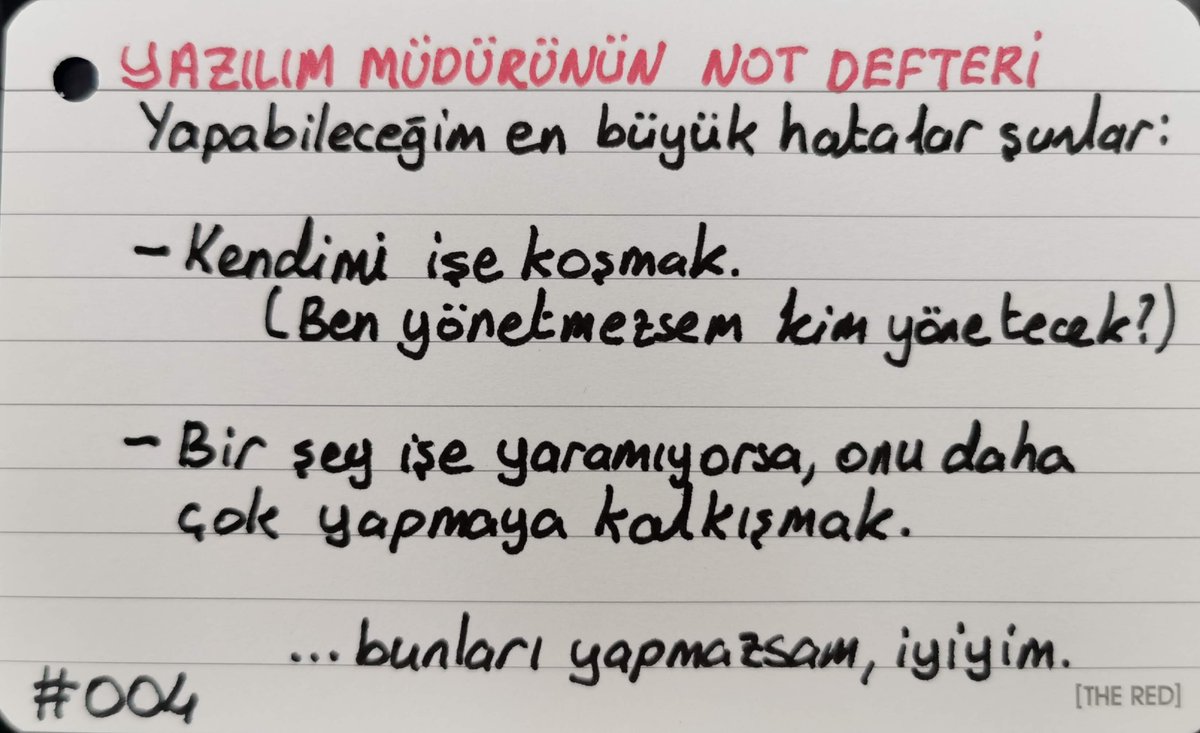 YAZILIM MÜDÜRÜNÜN NOT DEFTERİ
Yapabileceğim en büyük hatalar şunlar:
- Kendimi işe koşmak.
(Ben yönetmezsem kim yönetecek?)
- Bir şey işe yaramıyorsa, onu daha
çok yapmaya kalkışmak.
... bunları yapmazsam, iyiyim.
#004
[THE RED]